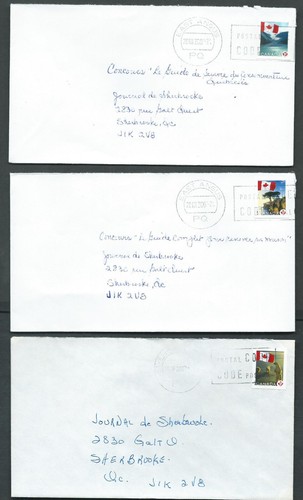 EAST ANGUS
PQ
POSTAL
CODE
Concours "Le Guide de
Journal de Sherbrooke
2830 rue Galt Ouest
Sherbrooke, Qc
J1K 2V8
EAST ANGUS
PQ
CODE
Concours "Le Guide Complet pour
Journal de Sherbrooke
2830 rue Galt Ouest
Sherbrooke, Qc
J1K 2V8
POSTAL CO
CODE PO
CANADA
JOURNAL de Sherbrooke
2830 Galt O
SHERBROOKE
Qc. J1K 2V8